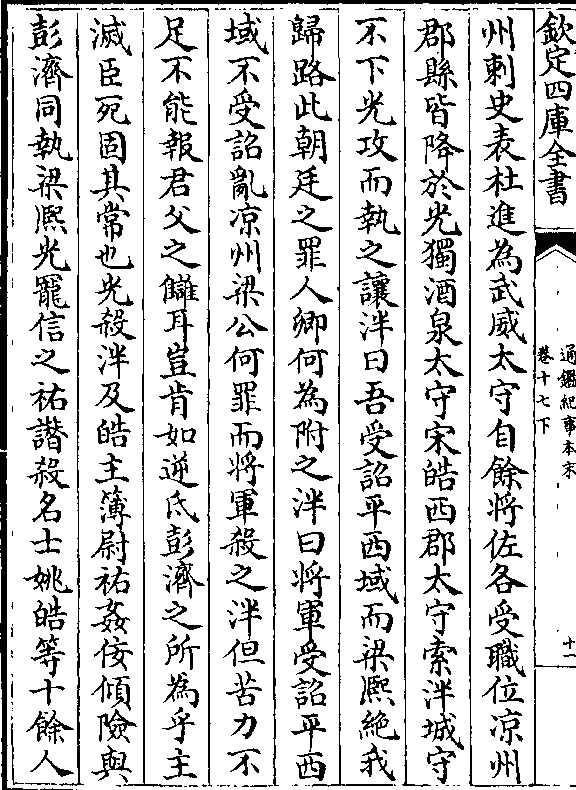 欽定四庫全書
通鑑紀事本末
卷十七下
十一
州刺史表杜進為武威太守自餘將佐各受職位涼州
郡縣皆降於光獨酒泉太守宋皓西郡太守索泮城守
不下光攻而執之讓泮曰吾受詔平西域而梁熙絶我
歸路此朝廷之罪人卿何為附之泮曰將軍受詔平西
域不受詔亂涼州梁公何罪而將軍殺之泮但苦力不
足不能報君父之讎耳豈肯如逆氐彭濟之所為乎主
滅臣死固其常也光殺泮及皓主簿尉祐姦佞傾險與
彭濟同執梁熙光寵信之祐譖殺名士姚皓等十餘人